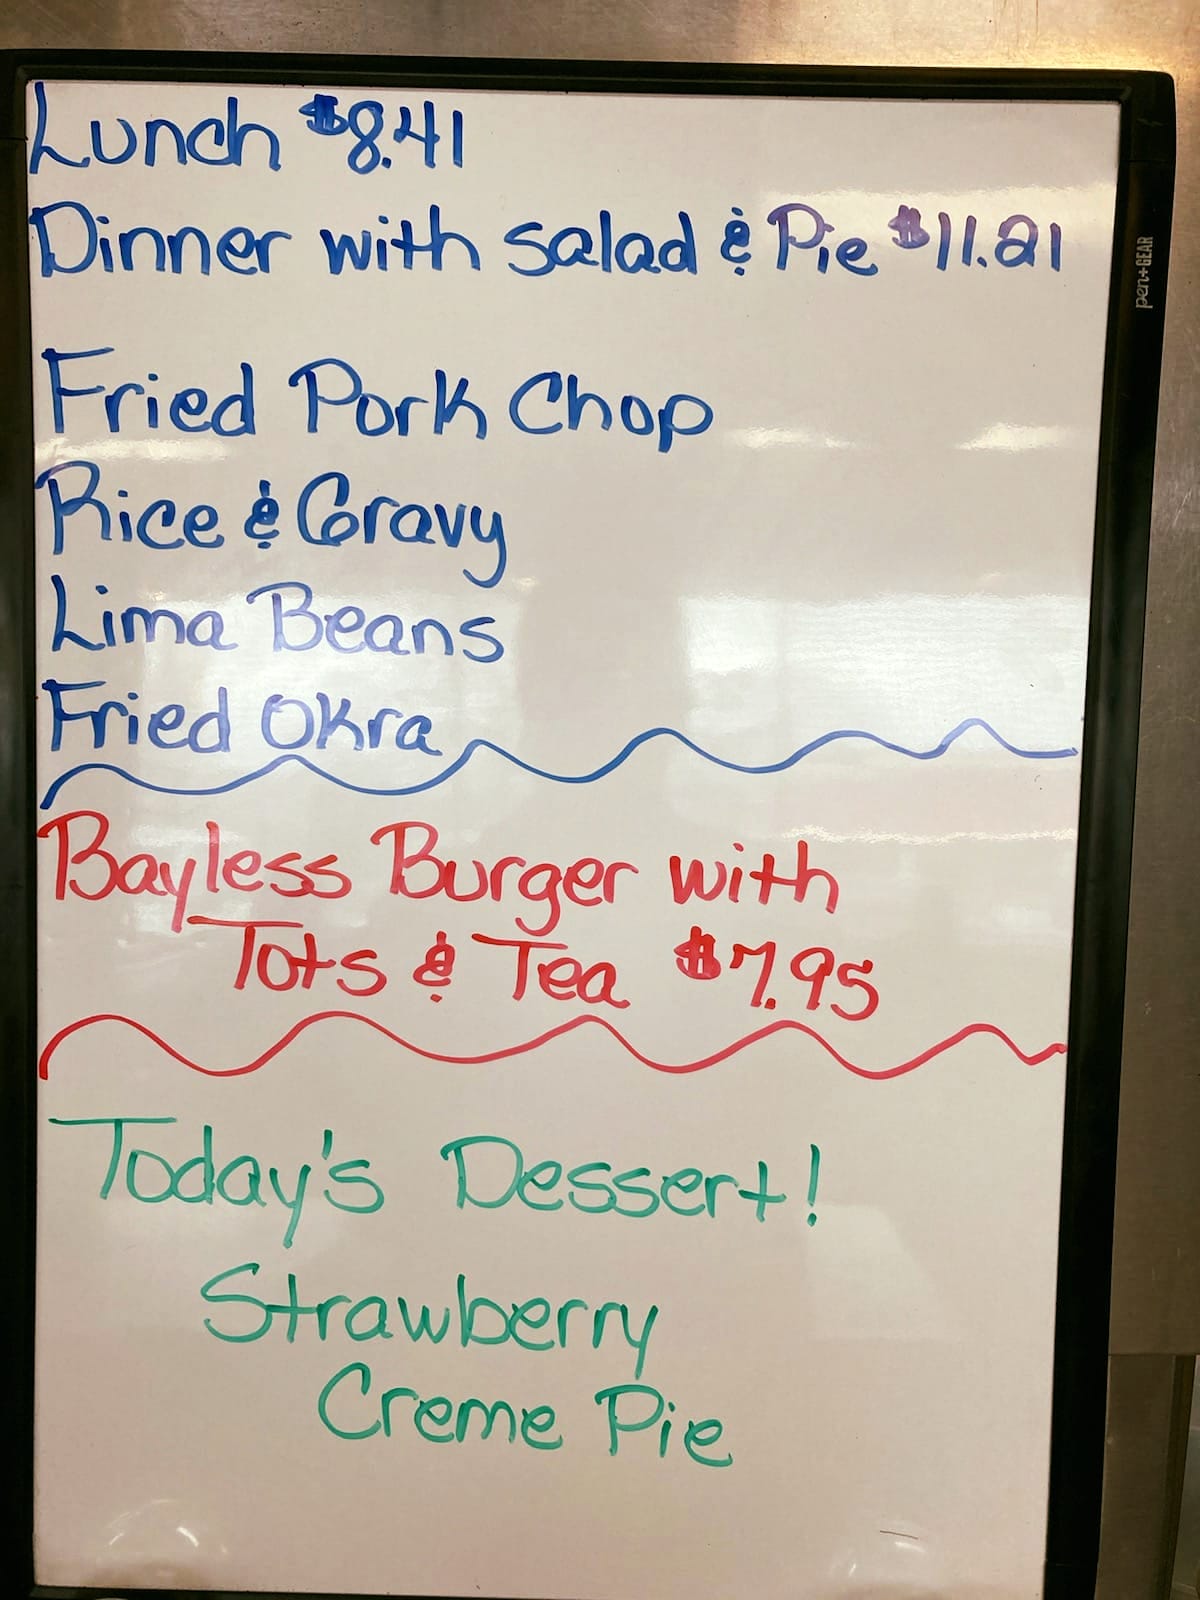 Lunch $8.41
Dinner with salad & Pie $11.21
Fried Pork Chop
Rice & Gravy
Lima Beans
Fried Okra
Bayless Burger with
Tots & Tea $7.95
Today's Dessert!
Strawberry
Creme Pie
pen+GEAR